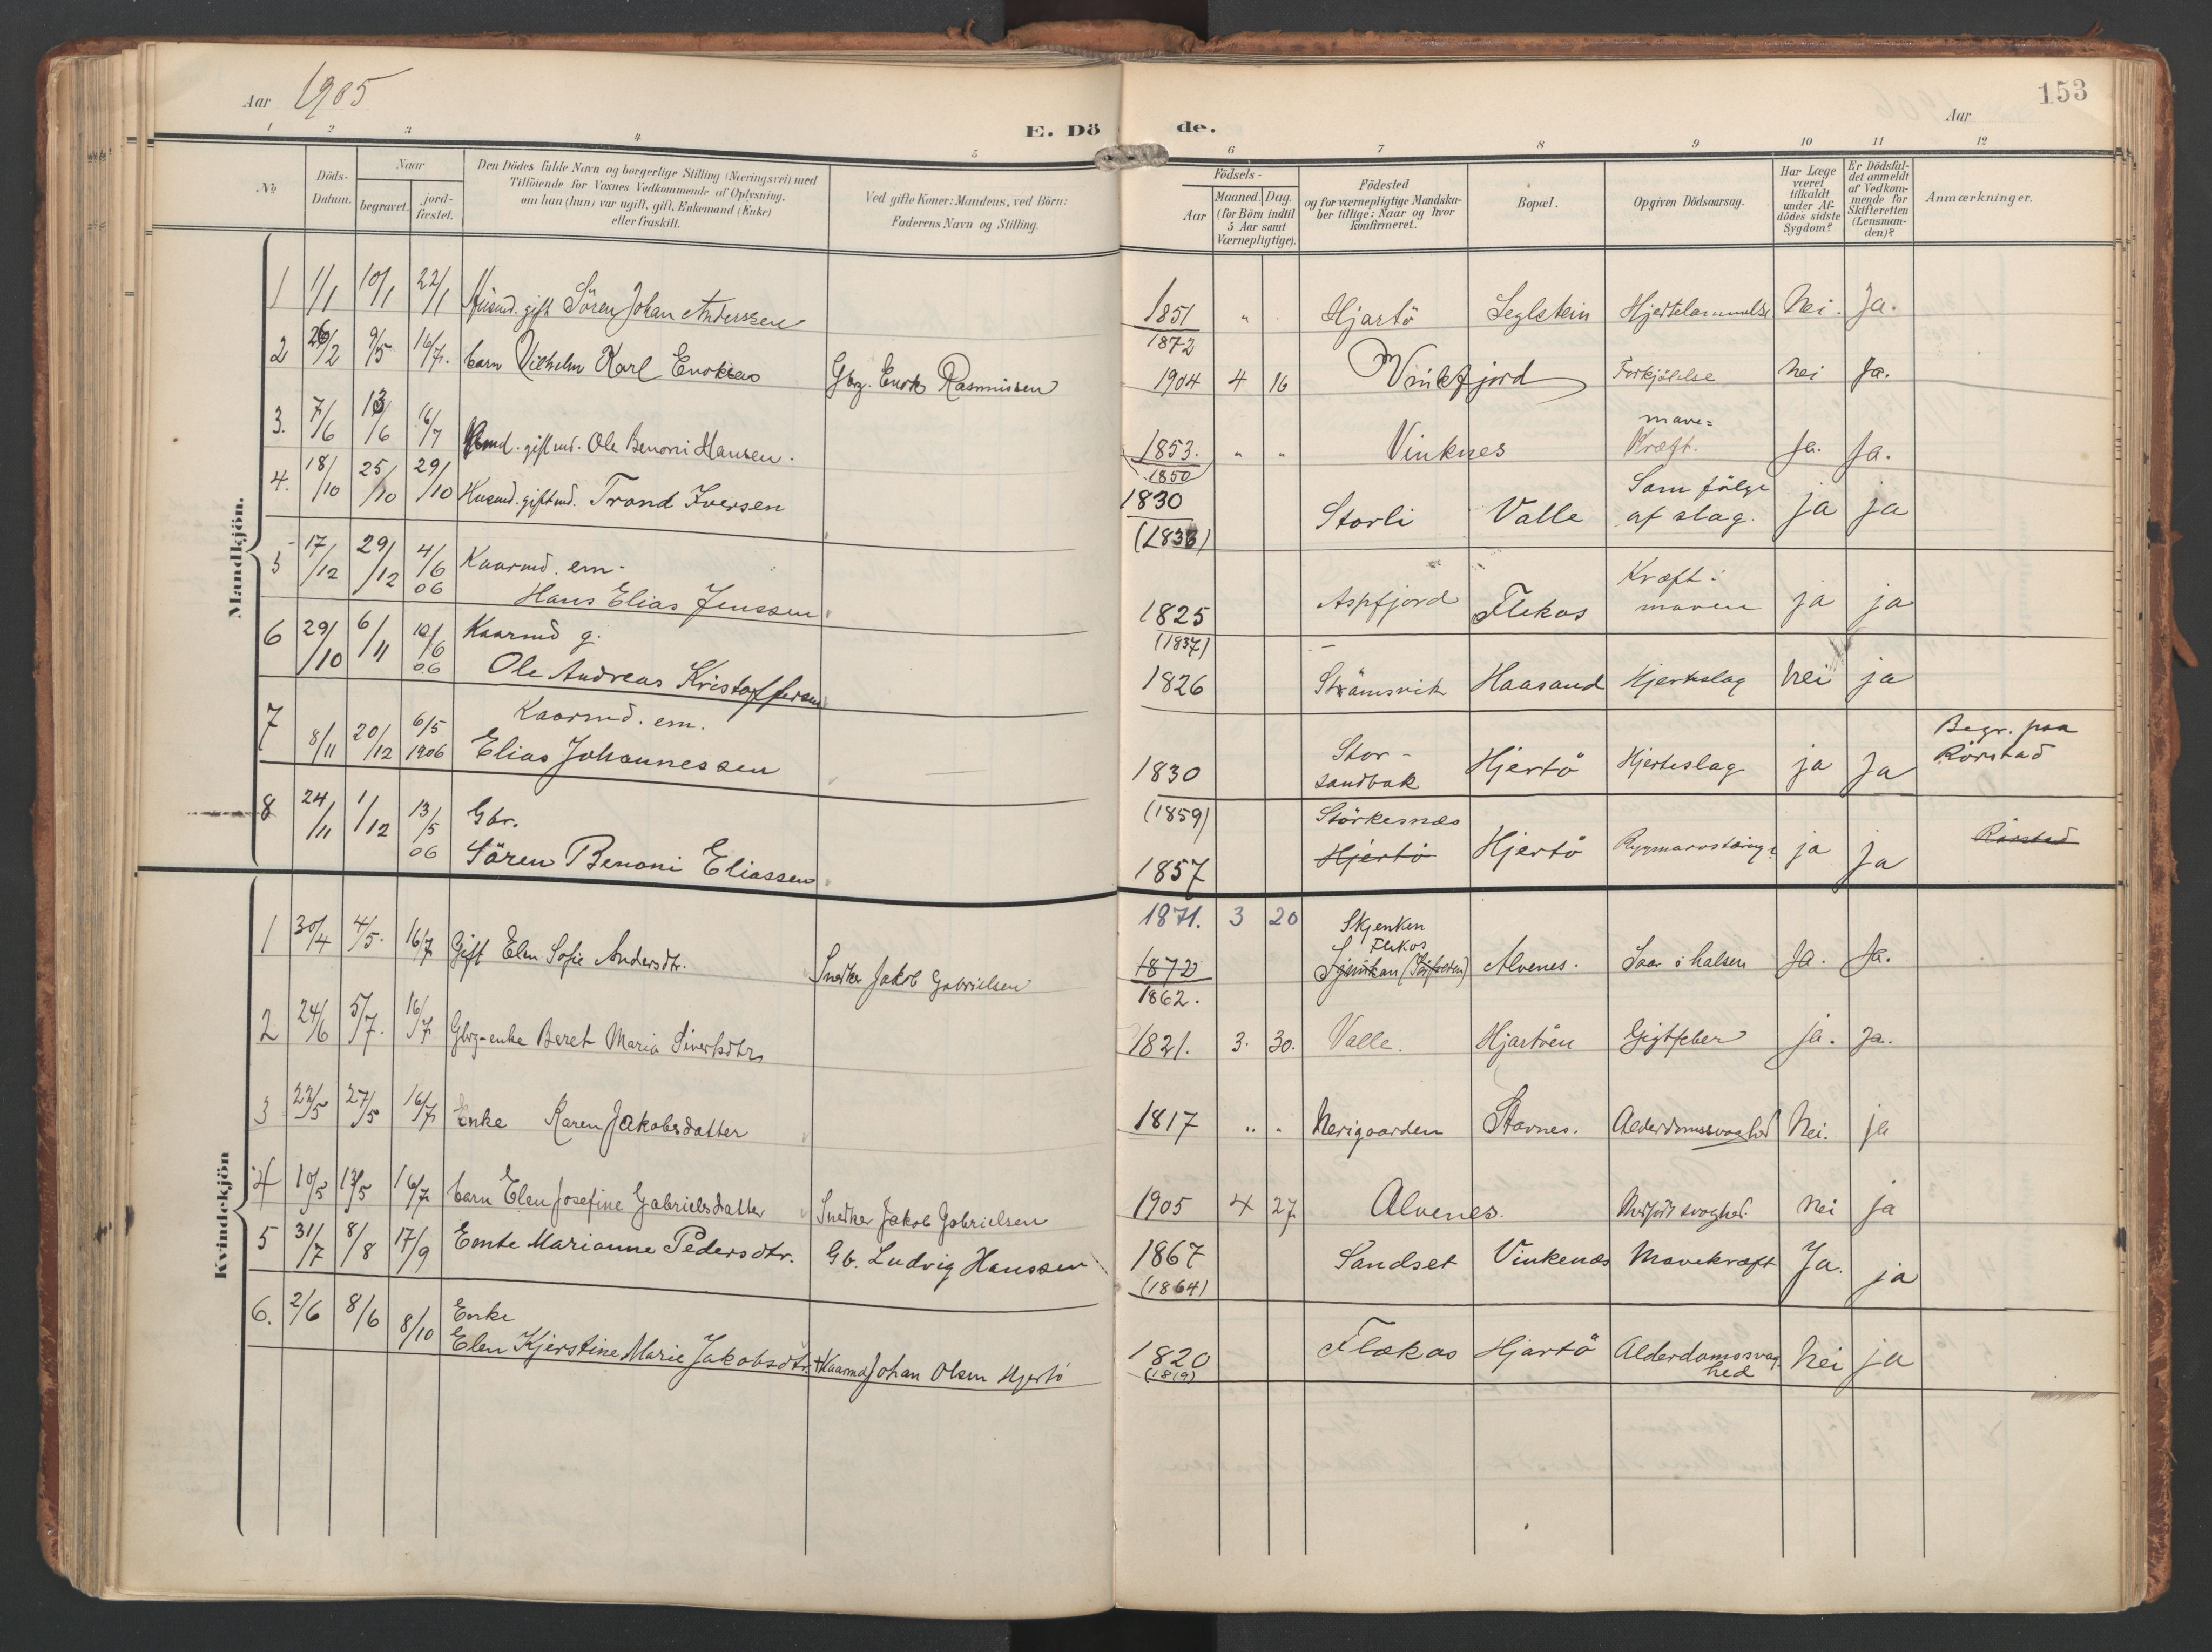 Aar 1905
E. Dö
1 2 3 4 5
№
Döds-
Datum.
Naar
begravet.
jord-
fæstet.
Den Dödes fulde Navn og borgerlige Stilling (Næringsvei) med
Tilföiende for Voxnes Vedkommende af Oplysning,
om han (hun) var ugift, gift, Enkemand (Enke)
eller fraskilt.
Ved gifte Koner: Mandens, ved Börn:
Faderens Navn og Stilling.
Mandkjön.
1 1/1 10/1 22/1 Husmd. gift Sören Johan Anderssen
2 26/2 9/5 16/7. barn Vilhelm Karl Enoksen Gbrg. Enok Rasmussen
3. 7/6 13/6 16/7 gift md. Ole Benoni Hansen.
4. 18/10 25/10 29/10 Husmd. gift md. Trond Iversen
5 17/12 29/12 4/6 06 Kaarmd. em.
Hans Elias Jenssen
6 29/10 6/11 10/6 06 Kaarmd g.
Ole Andreas Kristoffersen
7 8/11 20/12 6/5 1906 Kaarmd. em.
Elias Johannessen
8 24/11 1/12 13/5 06 Gbr.
Sören Benoni Eliassen
Kvindekjön
1 30/4 4/5. 16/7 Gift Elen Sofie Andersdtr. Snedker Jakob Gabrielsen
2 24/6 5/7. 16/7 Gbrg-enke Beret Maria Sivertsdtr
3 22/5 27/5 16/7 Enke Karen Jakobsdatter
4 10/5 13/5 16/7 barn Elen Josefine Gabrielsdatter Snedker Jakob Gabrielsen
5 31/7 8/8 17/9 Emte Marianne Pedersdtr. Gb. Ludvig Hanssen
6. 2/6 8/6 8/10 Enke
Elen Kjerstine Marie Jakobsdtr. + Kaarmd Johan Olsen Hjertö
153
Aar
de.
6 7 8 9 10 11 12
Födsels-
Aar
Maaned. Dag.
(for Börn indtil
5 Aar samt
Værnepligtige).
Födested
og for værnepligtige Mandska-
ber tillige: Naar og hvor
konfirmeret.
Bopæl.
Opgiven Dödsaarsag.
Har Læge
været
tilkaldt
under Af-
dödes sidste
Sygdom?
Er Dödsfal-
det anmeldt
af Vedkom-
mende for
Skifteretten
(Lensman-
den)?
Anmærkninger.
1851 " Hjartö Seglstein Hjertelammelse Nei. Ja.
1872
1904 4 16 Vinkfjord Forkjölelse Nei Ja.
1853. " " Vinknes mave=
Kræft. Ja. Ja.
1850
1830 Storli Valle Som fölge
af slag. ja ja
(1833)
1825 Aspfjord Flekos Kræft i
maven ja ja
(1837)
1826 Strömsvik Haasand Hjerteslag Nei ja
1830 Stor-
sandbak Hjertö Hjerteslag ja Ja Begr. paa
Rörstad
(1859) Störkesnæs
1857 Hjertö Hjertö Rygmarvstæring ja Ja Rörstad
1871. 3 20 Skjenken
Flekos
1872 Alvenes. Saar i halsen Ja. Ja.
1862.
1821. 3. 30. Valle. Hjartöen Gigtfeber ja. Ja.
1817 " " Nerigaarden Stavnes. Alderdomssvaghed Nei. ja
1905 4 27 Alvenes. Medfödt svaghed. Nei ja
1867 Sandset Vinkenæs Mavekræft Ja. ja
(1864)
1820 Flækos Hjartö Alderdomssvag-
hed Nei ja
(1819)